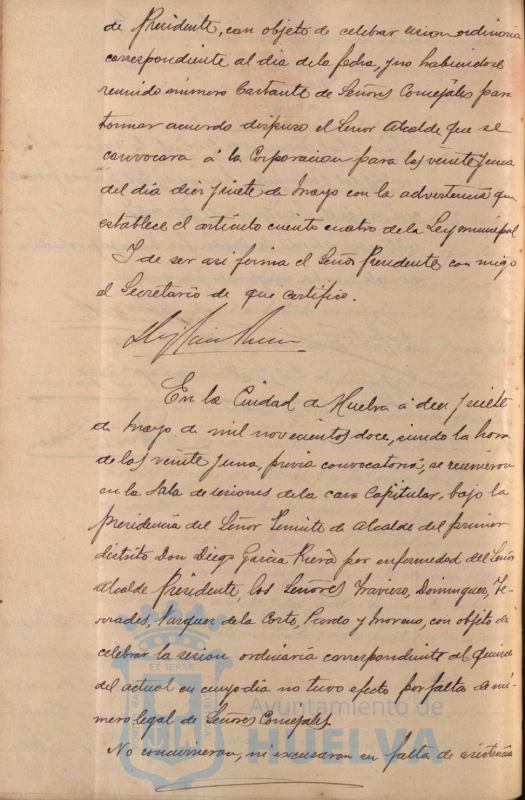 de Presidente, con objeto de celebrar sesion ordinaria
correspondiente al dia de la fecha, y no habiendose
reunido número bastante de Señores Concejales para
tomar acuerdo dispuso el Señor Alcalde que se
convocara á la Corporacion para las veinte y una
del dia diez y siete de Mayo con la advertencia que
establece el artículo ciento cuatro de la Ley municipal
Y de ser asi firma el Señor Presidente, con migo
el Secretario de que certifico.
En la Ciudad de Huelva á diez y siete
de Mayo de mil novecientos doce, siendo la hora
de las veinte y una, previa convocatoria, se reunieron
en la Sala de sesiones de la casa Capitular, bajo la
presidencia del Señor Teniente de Alcalde del primer
distrito Don Diego Garcia Riera por enfermedad del Señor
Alcalde Presidente los Señores Travieso, Dominguez, Te-
rrades, Vazquez de la Corte, Pardo y Moreno, con objeto de
celebrar la sesion ordinaria correspondiente al quince
del actual en cuyo dia no tuvo efecto por falta de nú-
mero legal de Señores Concejales.
No concurrieron, ni excusaron su falta de asistencia
Ayuntamiento de
HUELVA